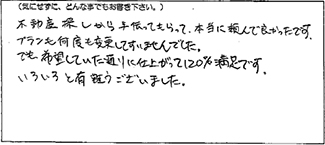 (気にせずに、どんな事でもお書き下さい。)
不動産探しから手伝ってもらって、本当に頼んで良かったです。
プランも何度も変更してすいませんでした。
でも希望していた通りに仕上がって120%満足です。
いろいろと有難うございました。